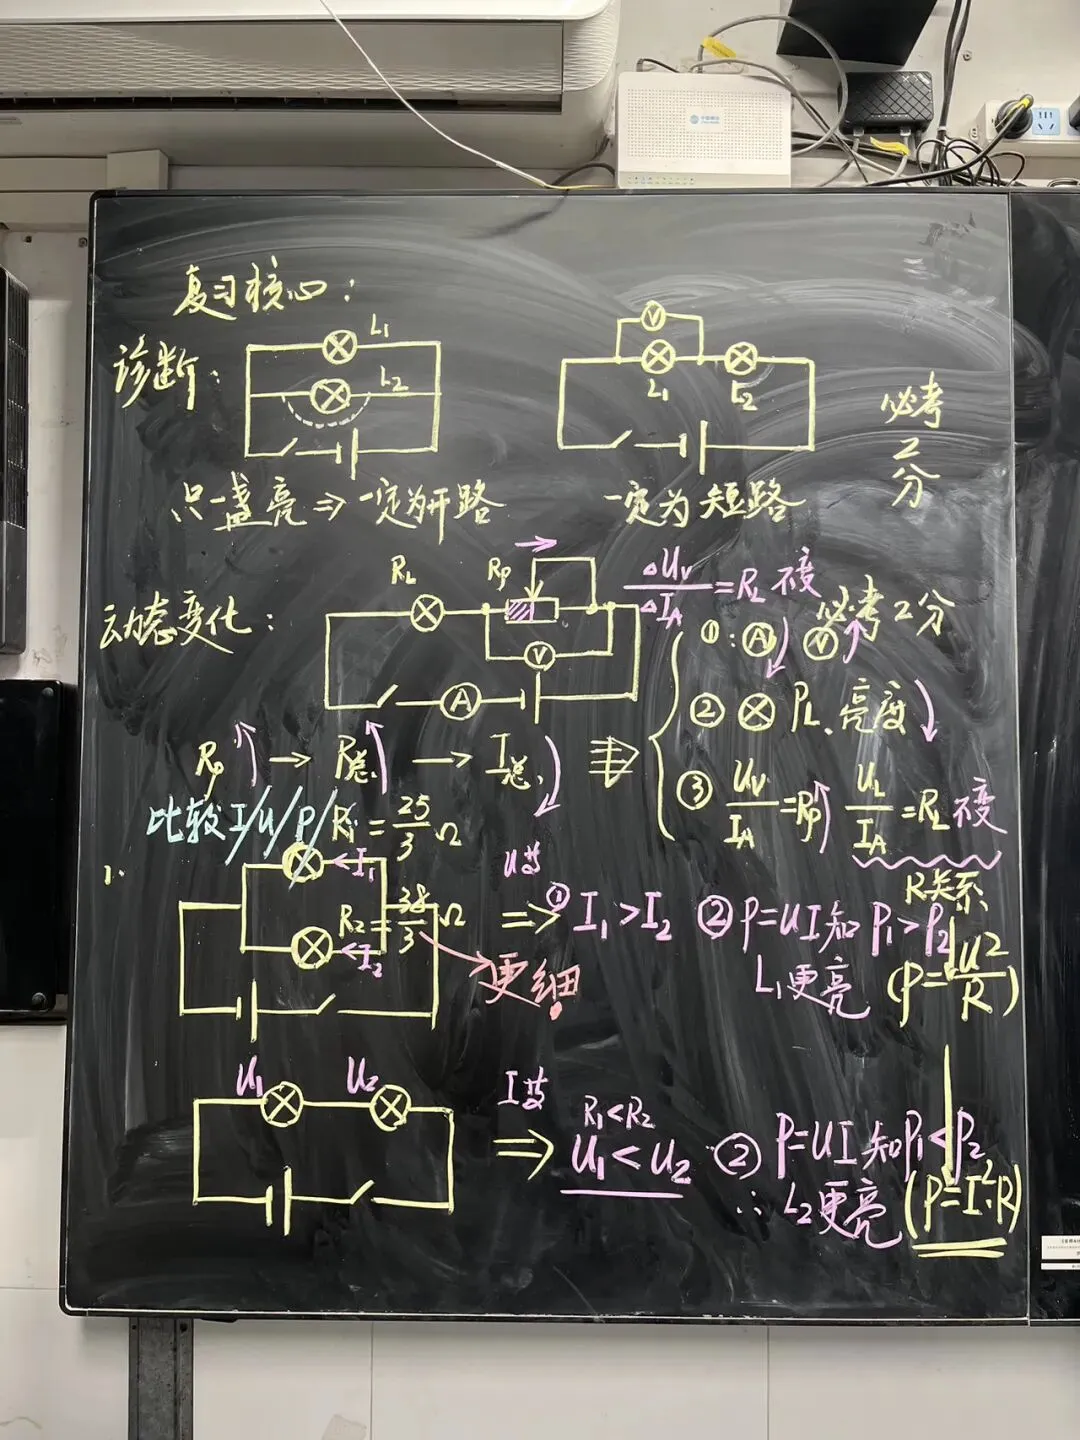 中国移动
复习核心:
诊断:
L₁
L₂
V
L₁
L₂
必考
2
分
只一盏亮⇒一定为开路
一定为短路
动态变化:
RL
Rp
V
A
ΔUV/ΔIA=RL 不变
必考2分
①:Ⓐ↓ Ⓥ↑
②⊗PL、亮度↓
③UV/IA=Rp↑ UL/IA=RL 不变
Rp↑→R总↑→I总↓
比较I/U/P/R关系
1.
R₁=25/3Ω
I₁
R₂=38/3Ω
I₂
更细
U等
⇒①I₁>I₂ ②P=UI知P₁>P₂
L₁更亮 (P=U²/R)
U₁ U₂
I等
R₁<R₂
⇒U₁<U₂ ②P=UI知P₁<P₂
∴L₂更亮 (P=I²·R)